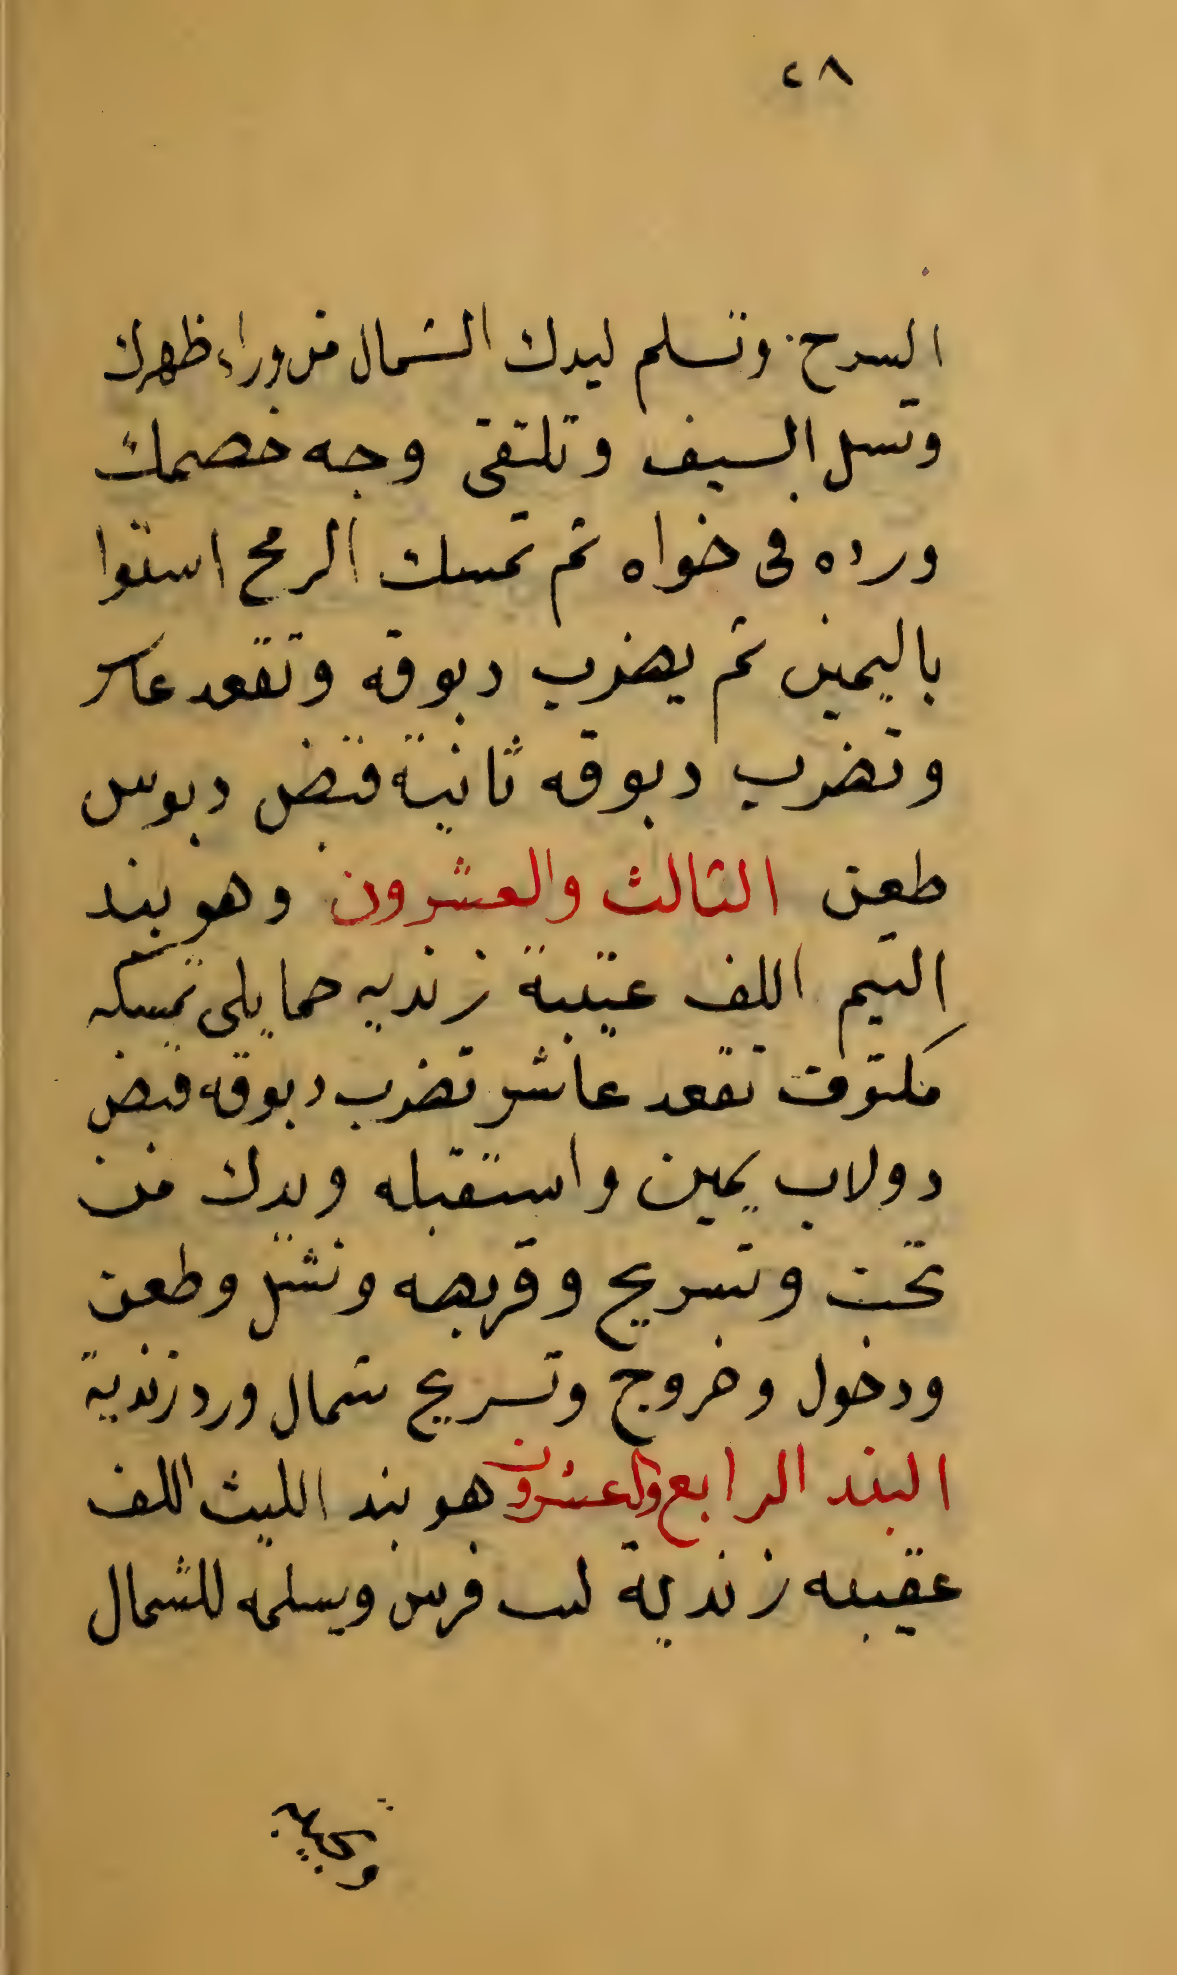 ٢٨
السرح وتسلم ليدك الشمال من وراء ظهرك
وتسل السيف وتلتقى وجه خصمك
ورده فى خواه ثم تمسك الرمح استوا
باليمين ثم يضرب دبوقه وتقعد عاسر
وتضرب دبوقه ثانية قبض دبوس
طعن الثالث والعشرون وهو بند
التيم اللف عتيبة زنديه حمايلى تمسكه
مكتوف تقعد عاشر تضرب دبوقه قبض
دولاب يمين واستقبله ويدك من
تحت وتسريح وقربصه ونشل وطعن
ودخول وخروج وتسريح شمال ورد زندية
البند الرابع والعشرون هو بند الليث اللف
عقيبه زندية لبب فرس ويسلمه للشمال
وتجيبه